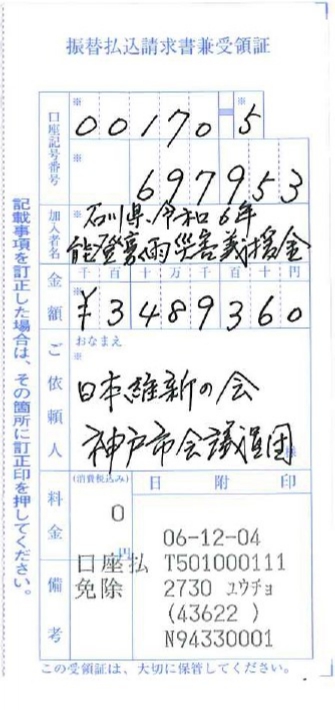 振替払込請求書兼受領証
口座記号番号
※ 00170-5
※ 697953
加入者名
※ 石川県令和6年
能登豪雨災害義援金
金額
千 百 十 万 千 百 十 円
※ ¥3489360
ご依頼人
おなまえ
※
日本維新の会
神戸市会議員団
様
料金
(消費税込み)
0
円
日 附 印
06-12-04
口座払 T501000111
備考
免除 2730 ユウチョ
(43622 )
N94330001
記載事項を訂正した場合は、その箇所に訂正印を押してください。
この受領証は、大切に保管してください。